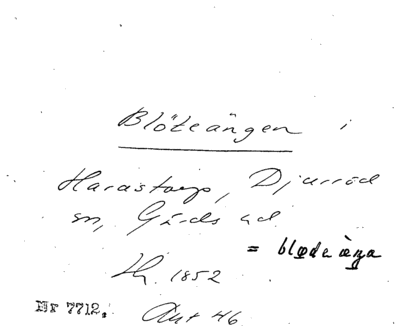 Blöteängen i
Harastorp, Djurröd
sn, Gärds hd.
= bløde æŋa
Lh. 1852
Nr 7712. Akt 46